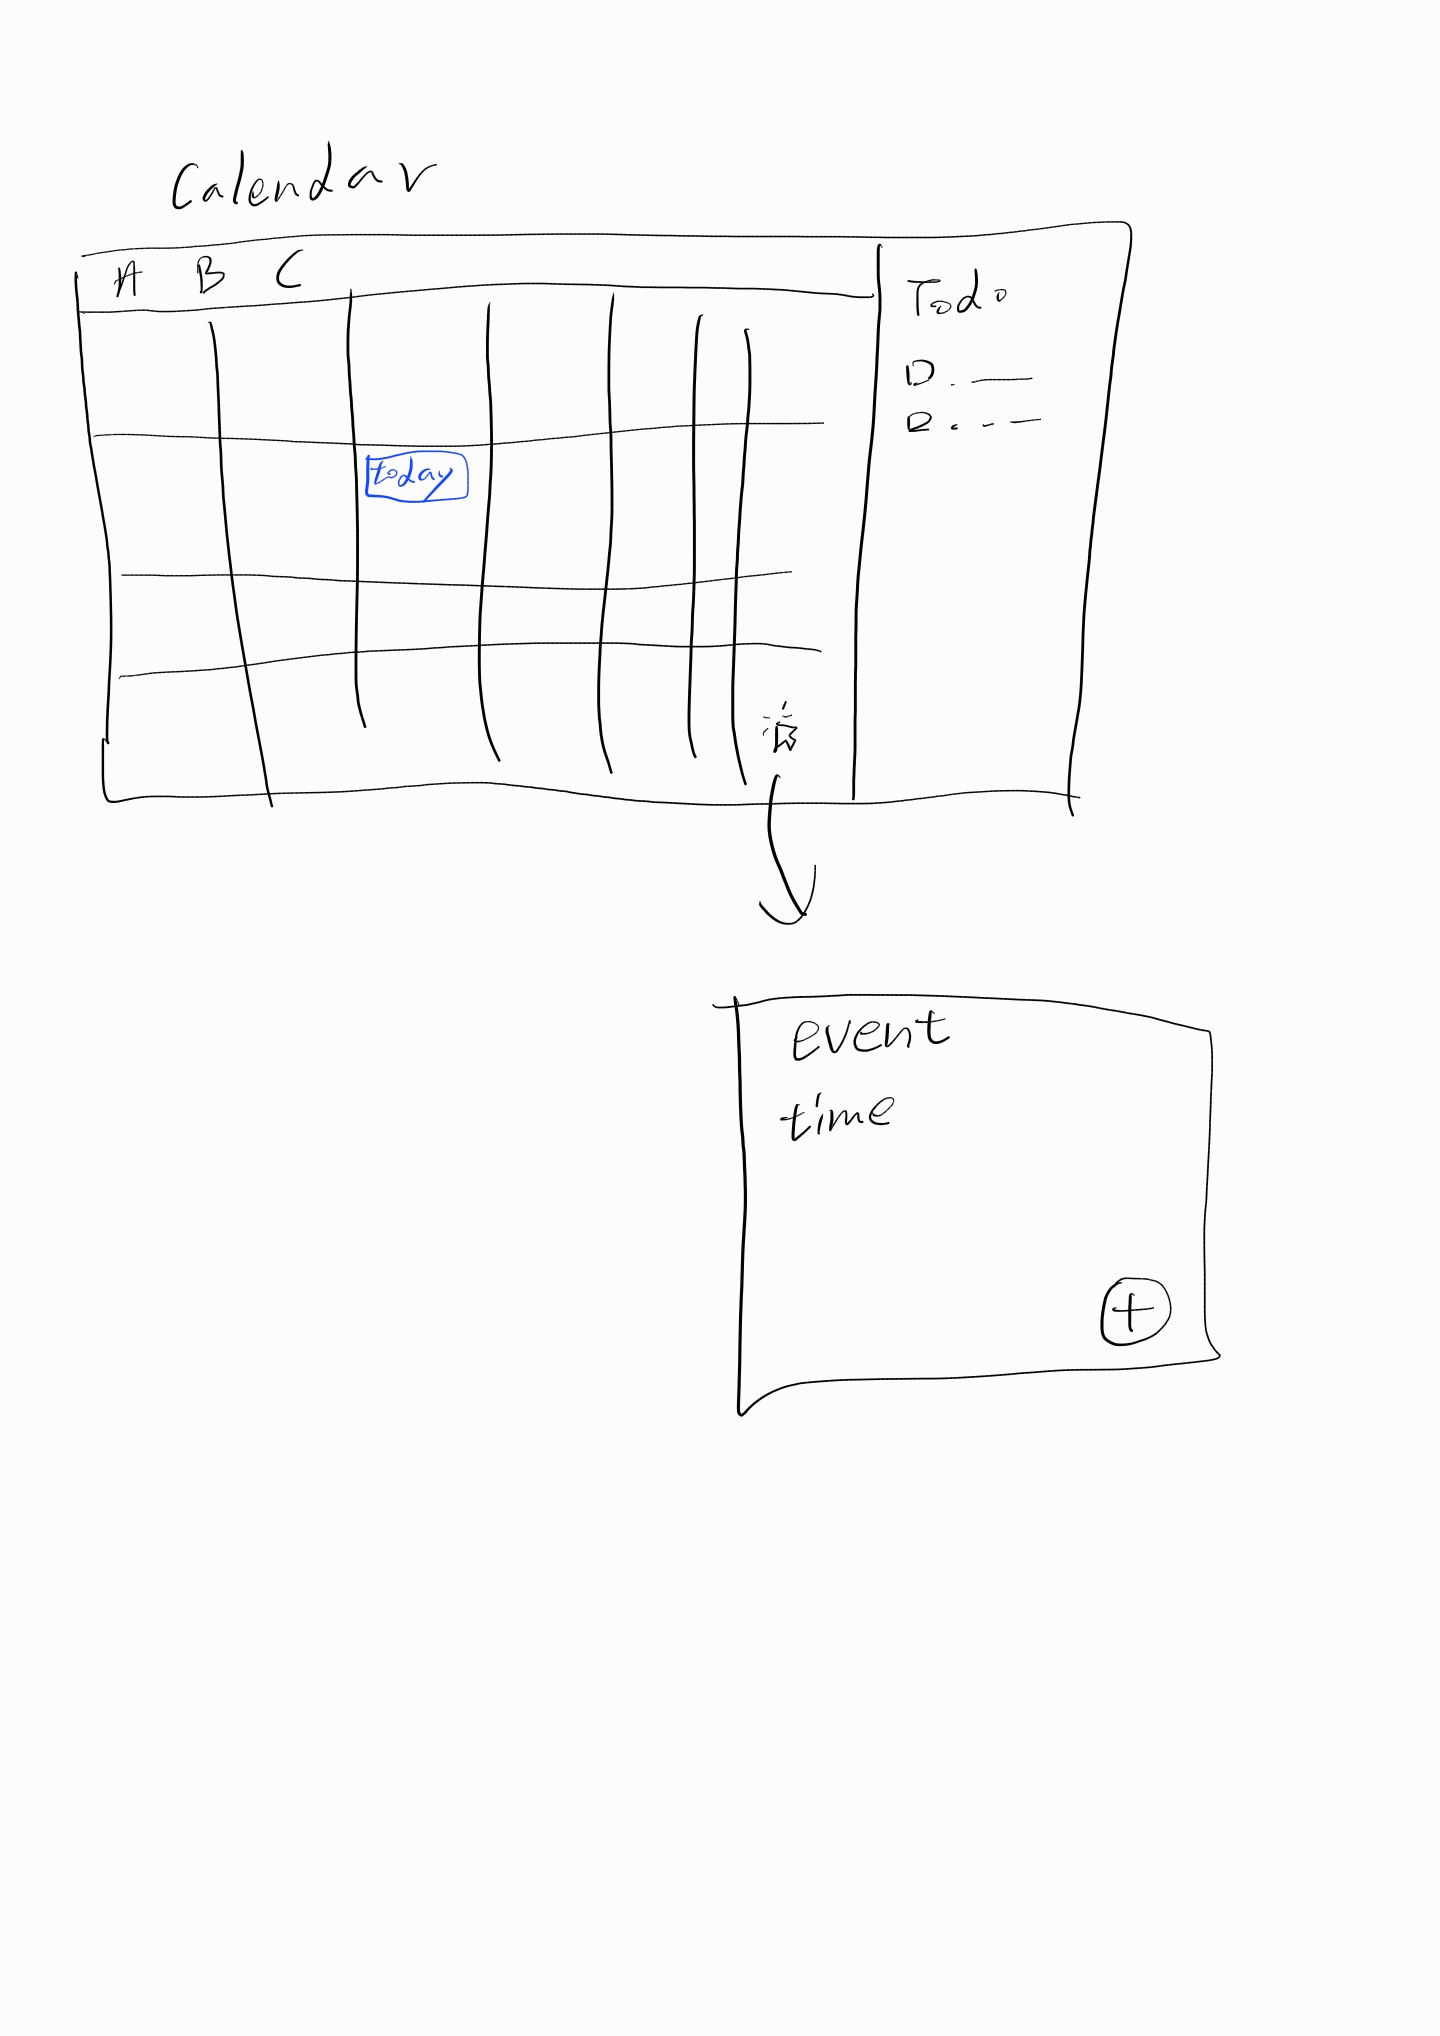 Calendar
A B C
Todo
today
event
time